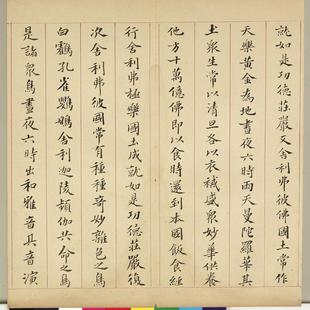 就如是功德莊嚴又舍利弗彼佛國土常作
天樂黃金為地晝夜六時雨天曼陀羅華其
土眾生常以清旦各以衣祴盛眾妙華供養
他方十萬億佛即以食時還到本國飯食經
行舍利弗極樂國土成就如是功德莊嚴復
次舍利弗彼國常有種種奇妙雜色之鳥
白鶴孔雀鸚鵡舍利迦陵頻伽共命之鳥
是諸眾鳥晝夜六時出和雅音其音演